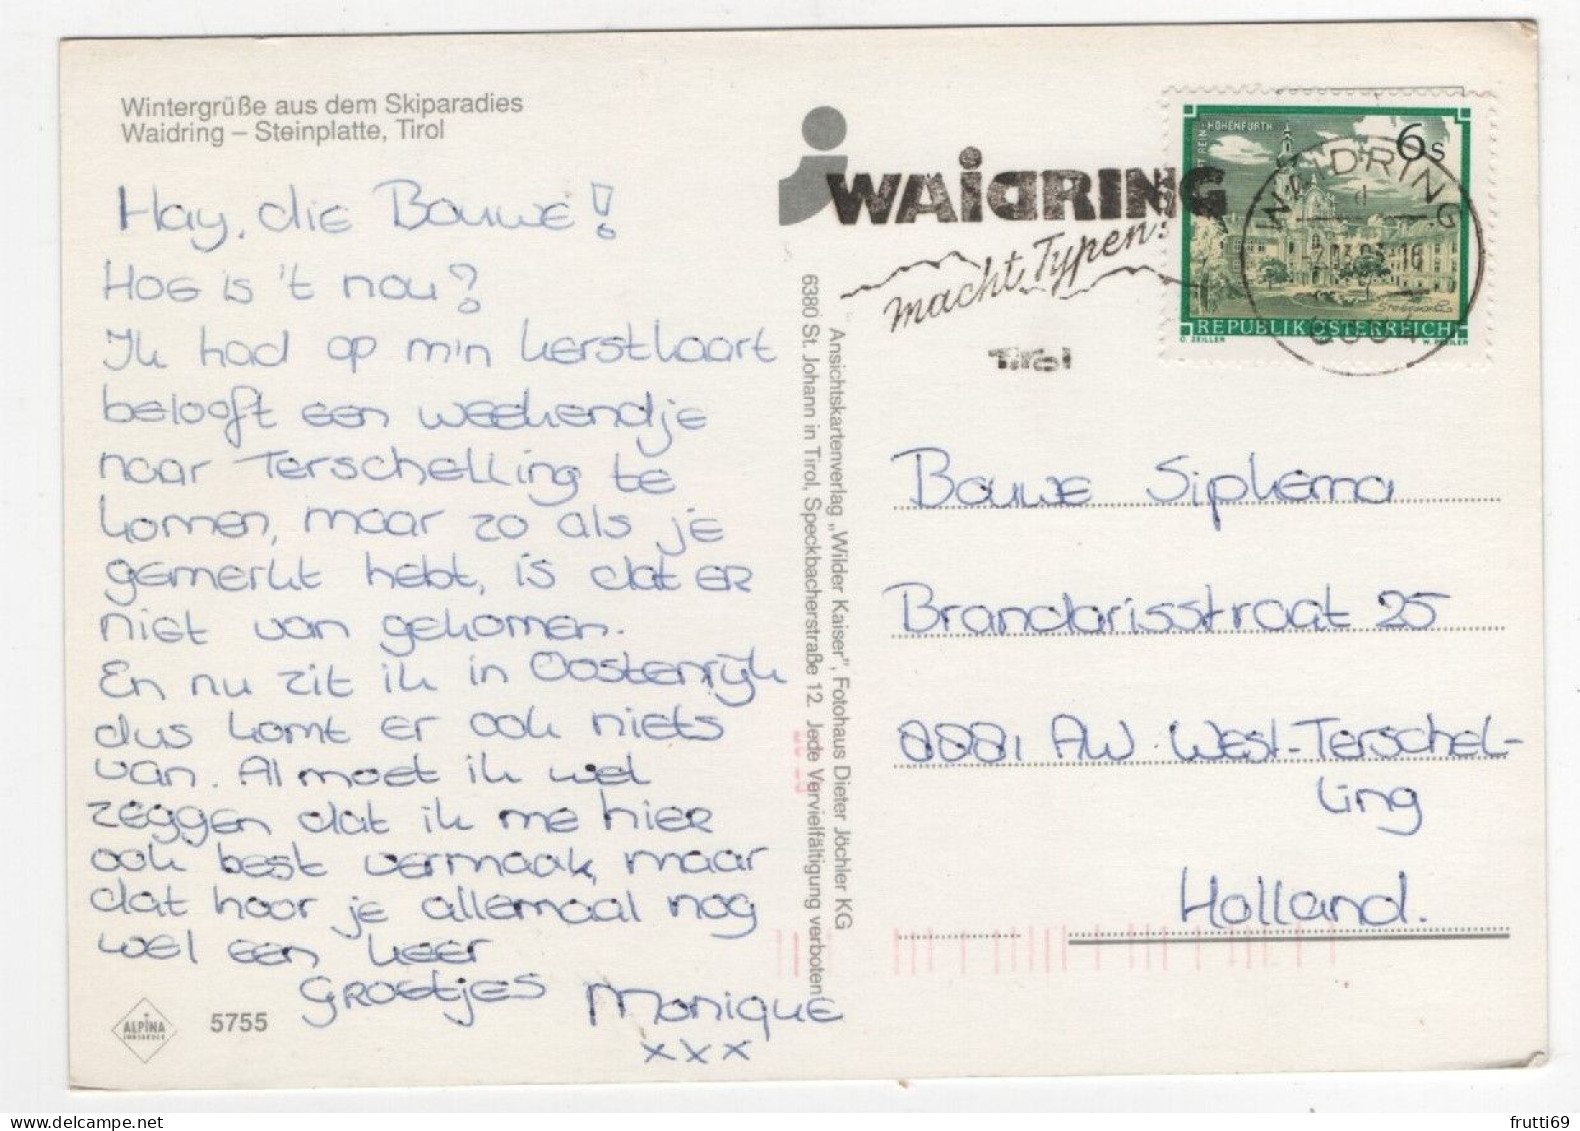 Wintergrüße aus dem Skiparadies
Waidring – Steinplatte, Tirol
Hay, die Bouwe!
Hoe is 't nou?
Ik had op m'n kerstkaart
belooft een weekendje
naar Terschelling te
komen, maar zo als je
gemerkt hebt, is dat er
niet van gekomen.
En nu zit ik in Oostenrijk
dus komt er ook niets
van. Al moet ik wel
zeggen dat ik me hier
ook best vermaak, maar
dat hoor je allemaal nog
wel een keer
Groetjes Monique
xxx
ALPINA
INNSBRUCK
5755
Ansichtskartenverlag „Wilder Kaiser", Fotohaus Dieter Jöchler KG
6380 St. Johann in Tirol, Speckbacherstraße 12. Jede Vervielfältigung verboten!
i WAIDRING
macht Typen!
Tirol
STIFT REIN-HOHENFURTH
6s
REPUBLIK ÖSTERREICH
O. ZEILLER
WAIDRING
Bouwe Sipkema
Brandarisstraat 25
8881 AW West-Terschel-
ling
Holland.
frutti69